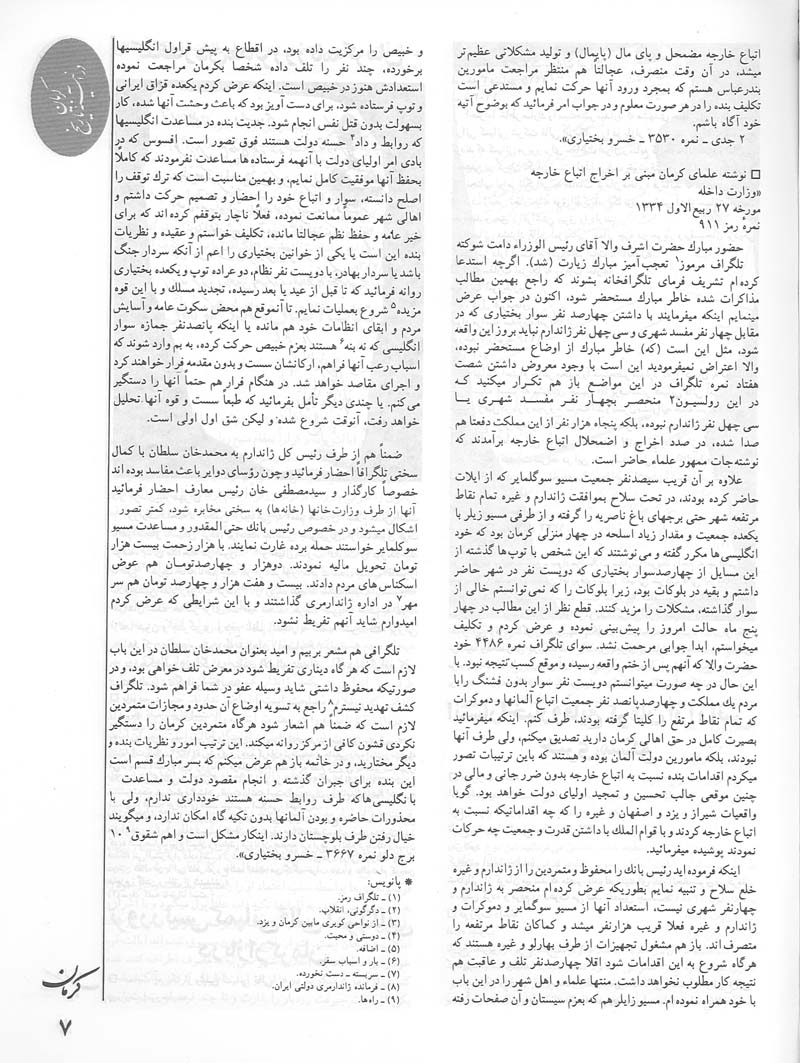 اتباع خارجه مضمحل و پای مال (پایمال) و تولید مشکلاتی عظیم‌تر
میشد، در آن وقت منصرف، عجالتاً هم منتظر مراجعت مامورین
بندرعباس هستم که بمجرد ورود آنها حرکت نمایم و مستدعی است
تکلیف بنده را در هر صورت معلوم و در جواب امر فرمائید که بوضوح آتیه
خود آگاه باشم.
۲ جدی ـ نمره ۳۵۳۰ ـ خسرو بختیاری».
□ نوشته علمای کرمان مبنی بر اخراج اتباع خارجه
«وزارت داخله
مورخه ۲۷ ربیع‌الاول ۱۳۳۴
نمره رمز ۹۱۱
حضور مبارك حضرت اشرف والا آقای رئیس الوزراء دامت شوکته
تلگراف مرموز۱ تعجب‌آمیز مبارك زیارت (شد). اگرچه استدعا
کرده‌ام تشریف فرمای تلگرافخانه بشوند که راجع بهمین مطالب
مذاکرات شده خاطر مبارك مستحضر شود، اکنون در جواب عرض
مینمایم اینکه میفرمایند با داشتن چهارصد نفر سوار بختیاری که در
مقابل چهار نفر مفسد شهری و سی چهل نفر ژاندارم نباید بروز این واقعه
شود، مثل این است (که) خاطر مبارك از اوضاع مستحضر نبوده،
والا اعتراض نمیفرمودید این است با وجود معروض داشتن شصت
هفتاد نمره تلگراف در این مواضع باز هم تکرار میکنید که
در این رولسیون۲ منحصر بچهار نفر مفسد شهری یا
سی چهل نفر ژاندارم نبوده، بلکه پنجاه هزار نفر از این مملکت دفعتا هم
صدا شده، در صدد اخراج و اضمحلال اتباع خارجه برآمدند که
نوشته‌جات ممهور علماء حاضر است.
علاوه بر آن قریب سیصدنفر جمعیت مسیو سوگلمایر که از ایلات
حاضر کرده بودند، در تحت سلاح بموافقت ژاندارم و غیره تمام نقاط
مرتفعه شهر حتی برجهای باغ ناصریه را گرفته و از طرفی مسیو زیلر با
یکعده جمعیت و مقدار زیاد اسلحه در چهار منزلی کرمان بود که خود
انگلیسی‌ها مکرر گفته و می‌نوشتند که این شخص با توپ‌ها گذشته از
این مسایل از چهارصدسوار بختیاری که دویست نفر در شهر حاضر
داشتم و بقیه در بلوکات بود، زیرا بلوکات را که نمی‌توانستم خالی از
سوار گذاشته، مشکلات را مزید کنند. قطع نظر از این مطالب در چهار
پنج ماه حالت امروز را پیش‌بینی نموده و عرض کردم و تکلیف
میخواستم، ابدا جوابی مرحمت نشد. سوای تلگراف نمره ۴۴۸۶ خود
حضرت والا که آنهم پس از ختم واقعه رسیده و موقع کسب نتیجه نبود. با
این حال در چه صورت میتوانستم دویست نفر سوار بدون فشنگ رابا
مردم یك مملکت و چهارصدپانصد نفر جمعیت اتباع آلمانها و دموکرات
که تمام نقاط مرتفع را کلیتا گرفته بودند، طرف کنم. اینکه میفرمائید
بصیرت کامل در حق اهالی کرمان دارید تصدیق میکنم، ولی طرف آنها
نبودند، بلکه مامورین دولت آلمان بوده و هستند که باین ترتیبات تصور
میکردم اقدامات بنده نسبت به اتباع خارجه بدون ضرر جانی و مالی در
چنین موقعی جالب تحسین و تمجید اولیای دولت خواهد بود. گویا
واقعیات شیراز و یزد و اصفهان و غیره را که چه اقداماتیکه نسبت به
اتباع خارجه کردند و با قوام الملك با داشتن قدرت و جمعیت چه حرکات
نمودند پوشیده میفرمائید.
اینکه فرموده‌اید رئیس بانك را محفوظ و متمردین را از ژاندارم و غیره
خلع سلاح و تنبیه نمایم بطوریکه عرض کرده‌ام منحصر به ژاندارم و
چهارنفر شهری نیست، استعداد آنها از مسیو سوگمایر و دموکرات و
ژاندارم و غیره فعلا قریب هزارنفر میشد و کماکان نقاط مرتفعه را
متصرف‌اند. باز هم مشغول تجهیزات از طرف بهارلو و غیره هستند که
هرگاه شروع به این اقدامات شود اقلا چهارصدنفر تلف و عاقبت هم
نتیجه کار مطلوب نخواهد داشت. منتها علماء و اهل شهر را در این باب
با خود همراه نموده‌ام. مسیو زایلر هم که بعزم سیستان و آن صفحات رفته
و خبیص را مرکزیت داده بود، در اقطاع به پیش قراول انگلیسیها
برخورده، چند نفر را تلف داده شخصا بکرمان مراجعت نموده
استعدادش هنوز در خبیص است. اینکه عرض کردم یکعده قزاق ایرانی
و توپ فرستاده شود، برای دست آویز بود که باعث وحشت آنها شده، کار
بسهولت بدون قتل نفس انجام شود. جدیت بنده در مساعدت انگلیسیها
که روابط و داد۴ حسنه دولت هستند فوق تصور است. افسوس که در
بادی امر اولیای دولت با آنهمه فرستاده‌ها مساعدت نفرمودند که کاملاً
بحفظ آنها موفقیت کامل نمایم، و بهمین مناسبت است که ترك توقف را
اصلح دانسته، سوار و اتباع خود را احضار و تصمیم حرکت داشتم و
اهالی شهر عموماً ممانعت نموده، فعلاً ناچار بتوقفم کرده‌اند که برای
خیر عامه و حفظ نظم عجالتا مانده، تکلیف خواستم و عقیده و نظریات
بنده این است یا یکی از خوانین بختیاری را اعم از آنکه سردار جنگ
باشد یا سردار بهادر، با دویست نفر نظام، دو عراده توپ و یکعده بختیاری
روانه فرمائید که تا قبل از عید یا بعد رسیده، تجدید مسلك و با این قوه
مزیده۵ شروع بعملیات نمایم. تا آنموقع هم محض سکوت عامه و آسایش
مردم و ابقای انظامات خود هم مانده یا اینکه پانصدنفر جمازه سوار
انگلیسی که نه بنه۶ هستند بعزم خبیص حرکت کرده، به بم وارد شوند که
اسباب رعب آنها فراهم، ارکانشان سست و بدون مقدمه فرار خواهند کرد
و اجرای مقاصد خواهد شد. در هنگام فرار هم حتماً آنها را دستگیر
می‌کنم. یا چندی دیگر تأمل بفرمائید که طبعاً سست و قوه آنها تحلیل
خواهد رفت، آنوقت شروع شده و لیکن شق اول اولی است.
ضمناً هم از طرف رئیس کل ژاندارم به محمدخان سلطان با کمال
سختی تلگرافاً احضار فرمائید و چون رؤسای دوایر باعث مفاسد بوده‌اند
خصوصاً کارگذار و سیدمصطفی خان رئیس معارف احضار فرمائید
آنها از طرف وزارت‌خانها (خانه‌ها) به سختی مخابره شود، کمتر تصور
اشکال میشود و در خصوص رئیس بانك حتی المقدور و مساعدت مسیو
سوکلمایر خواستند حمله برده غارت نمایند. با هزار زحمت بیست هزار
تومان تحویل مالیه نمودند. دوهزار و چهارصدتومان هم عوض
اسکناس‌های مردم دادند. بیست و هفت هزار و چهارصد تومان هم سر
مهر۷ در اداره ژاندارمری گذاشتند و با این شرایطی که عرض کردم
امیدوارم شاید آنهم تفریط نشود.
تلگرافی هم مشعر بربیم و امید بعنوان محمدخان سلطان در این باب
لازم است که هر گاه دیناری تفریط شود در معرض تلف خواهی بود، و در
صورتیکه محفوظ داشتی شاید وسیله عفو در شما فراهم شود. تلگراف
کشف تهدید نیسترم۸ راجع به تسویه اوضاع آن حدود و مجازات متمردین
لازم است که ضمناً هم اشعار شود هرگاه متمردین کرمان را دستگیر
نکردی قشون کافی از مرکز روانه میکند. این ترتیب امور و نظریات بنده و
دیگر مختارید، و در خاتمه باز هم عرض میکنم که بسر مبارك قسم است
این بنده برای جبران گذشته و انجام مقصود دولت و مساعدت
با نگلیسی‌ها که طرف روابط حسنه هستند خودداری ندارم، ولی با
محذورات حاضره و بودن آلمانها بدون تکیه گاه امکان ندارد، و میگویند
خیال رفتن طرف بلوچستان دارند. اینکار مشکل است و اهم شقوق۹ ۱۰
برج دلو نمره ۳۶۶۷ ـ خسرو بختیاری».
* پانویس:
(۱) ـ تلگراف رمز.
(۲) ـ دگرگونی، انقلاب.
(۳) ـ از نواحی کویری مابین کرمان و یزد.
(۴) ـ دوستی و محبت.
(۵) ـ اضافه.
(۶) ـ بار و اسباب سفر.
(۷) ـ سربسته ـ دست نخورده.
(۸) ـ فرمانده ژاندارمری دولتی ایران.
(۹) ـ راه‌ها.
کرمان
۷